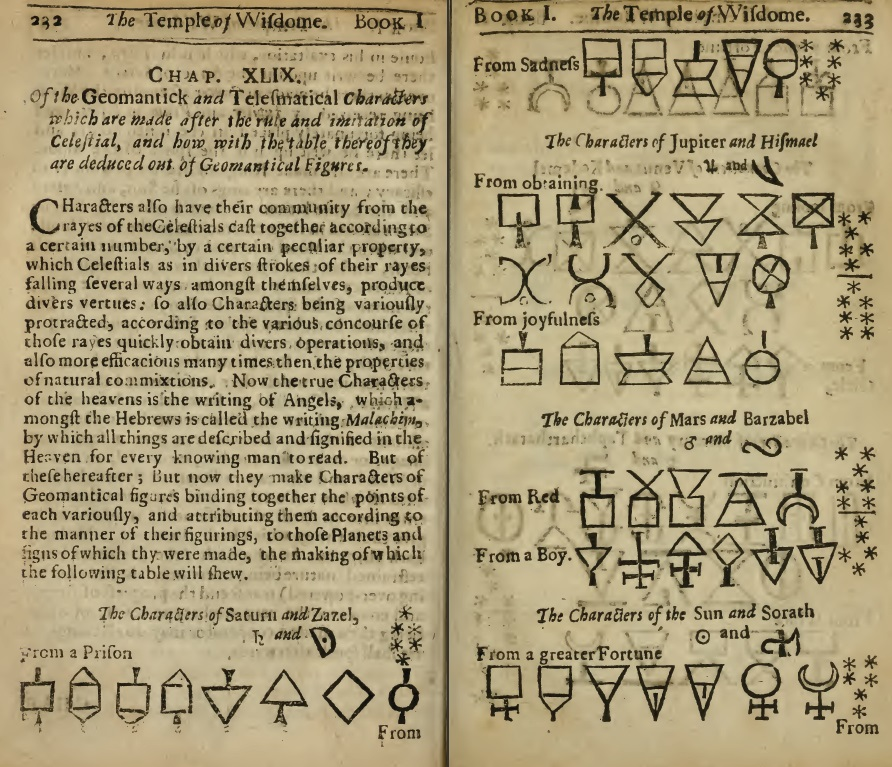 232 The Temple of Wiſdome. BOOK I
CHAP. XLIX.
Of the Geomantick and Teleſmatical Characters
which are made after the rule and imitation of
Celeſtial, and how with the table thereof they
are deduced out of Geomantical Figures.
CHaracters alſo have their community from the
rayes of the Celeſtials caſt together according to
a certain number, by a certain peculiar property,
which Celeſtials as in divers ſtrokes of their rayes
falling ſeveral ways amongſt themſelves, produce
divers vertues: ſo alſo Characters being variouſly
protracted, according to the various concourſe of
thoſe rayes quickly obtain divers operations, and
alſo more efficacious many times then the properties
of natural commixtions. Now the true Characters
of the heavens is the writing of Angels, which a-
mongſt the Hebrews is called the writing Malachim,
by which all things are deſcribed and ſignified in the
Heaven for every knowing man to read. But of
theſe hereafter; But now they make Characters of
Geomantical figures binding together the points of
each variouſly, and attributing them according to
the manner of their figurings, to thoſe Planets and
ſigns of which thy were made, the making of which
the following table will ſhew.
The Characters of Saturn and Zazel,
♄ and
From a Priſon
From
BOOK I. The Temple of Wiſdome. 233
From Sadneſs
The Characters of Jupiter and Hiſmael
♃ and
From obtaining.
From joyfulneſs
The Characters of Mars and Barzabel
♂ and
From Red
From a Boy.
The Characters of the Sun and Sorath
☉ and
From a greater Fortune
From